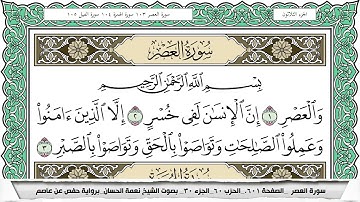 الجزء الثلاثون
سورة العصر ١٠٣ سورة الهمزة ١٠٤ سورة الفيل ١٠٥
سُورَةُ العَصْرِ
بِسْمِ اللَّهِ الرَّحْمَٰنِ الرَّحِيمِ
وَالْعَصْرِ ١ إِنَّ الْإِنسَٰنَ لَفِى خُسْرٍ ٢ إِلَّا الَّذِينَ ءَامَنُوا۟
وَعَمِلُوا۟ الصَّٰلِحَٰتِ وَتَوَاصَوْا۟ بِالْحَقِّ وَتَوَاصَوْا۟ بِالصَّبْرِ ٣
سورة العصر _ الصفحة ٦٠١_ الحزب ٦٠_ الجزء ٣٠_ بصوت الشيخ نعمة الحسان_ برواية حفص عن عاصم